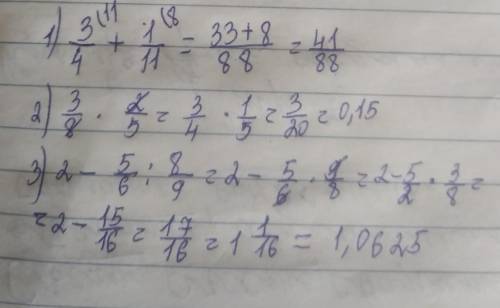 1) 3/4 (11 + 1/11 (8 = 33+8/88 = 41/88
2) 3/8 · 2/5 = 3/4 · 1/5 = 3/20 = 0,15
3) 2 - 5/6 : 8/9 = 2 - 5/6 · 9/8 = 2 - 5/2 · 3/8 =
= 2 - 15/16 = 17/16 = 1 1/16 = 1,0625